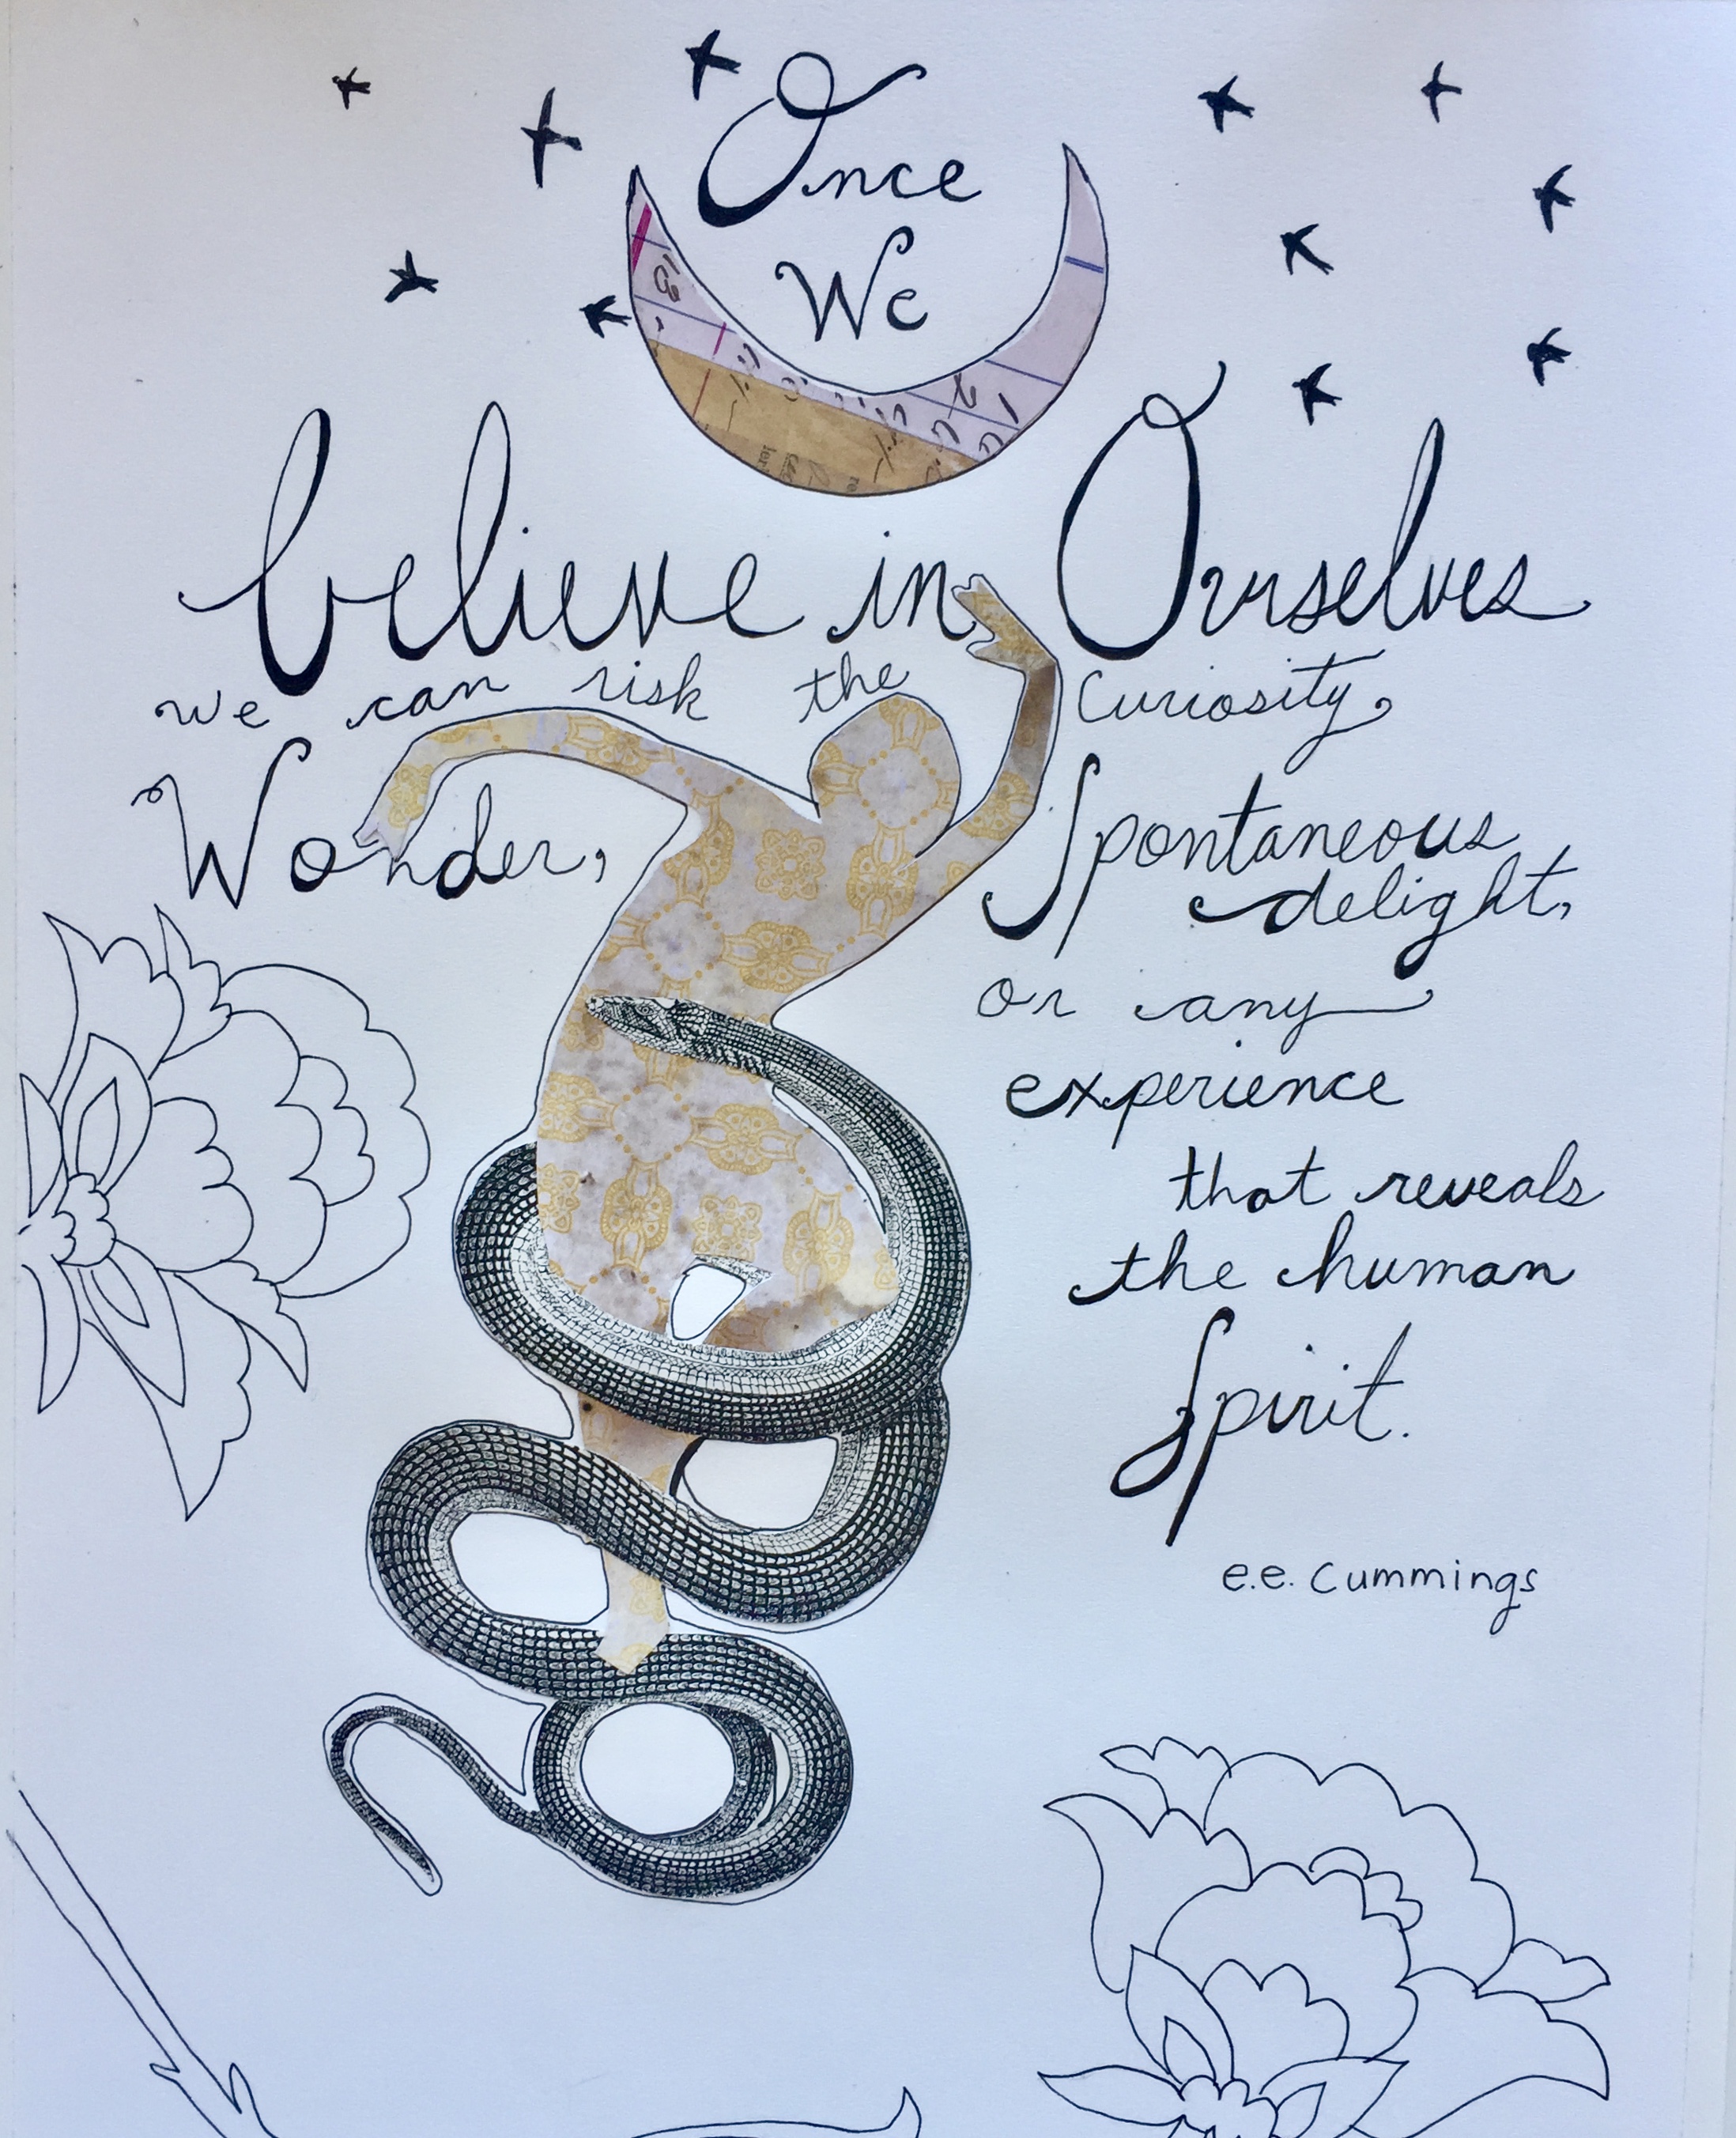 Once
We
believe in Ourselves
we can risk the Curiosity,
Wonder, Spontaneous
delight,
or any
experience
that reveals
the human
Spirit.
e.e. Cummings